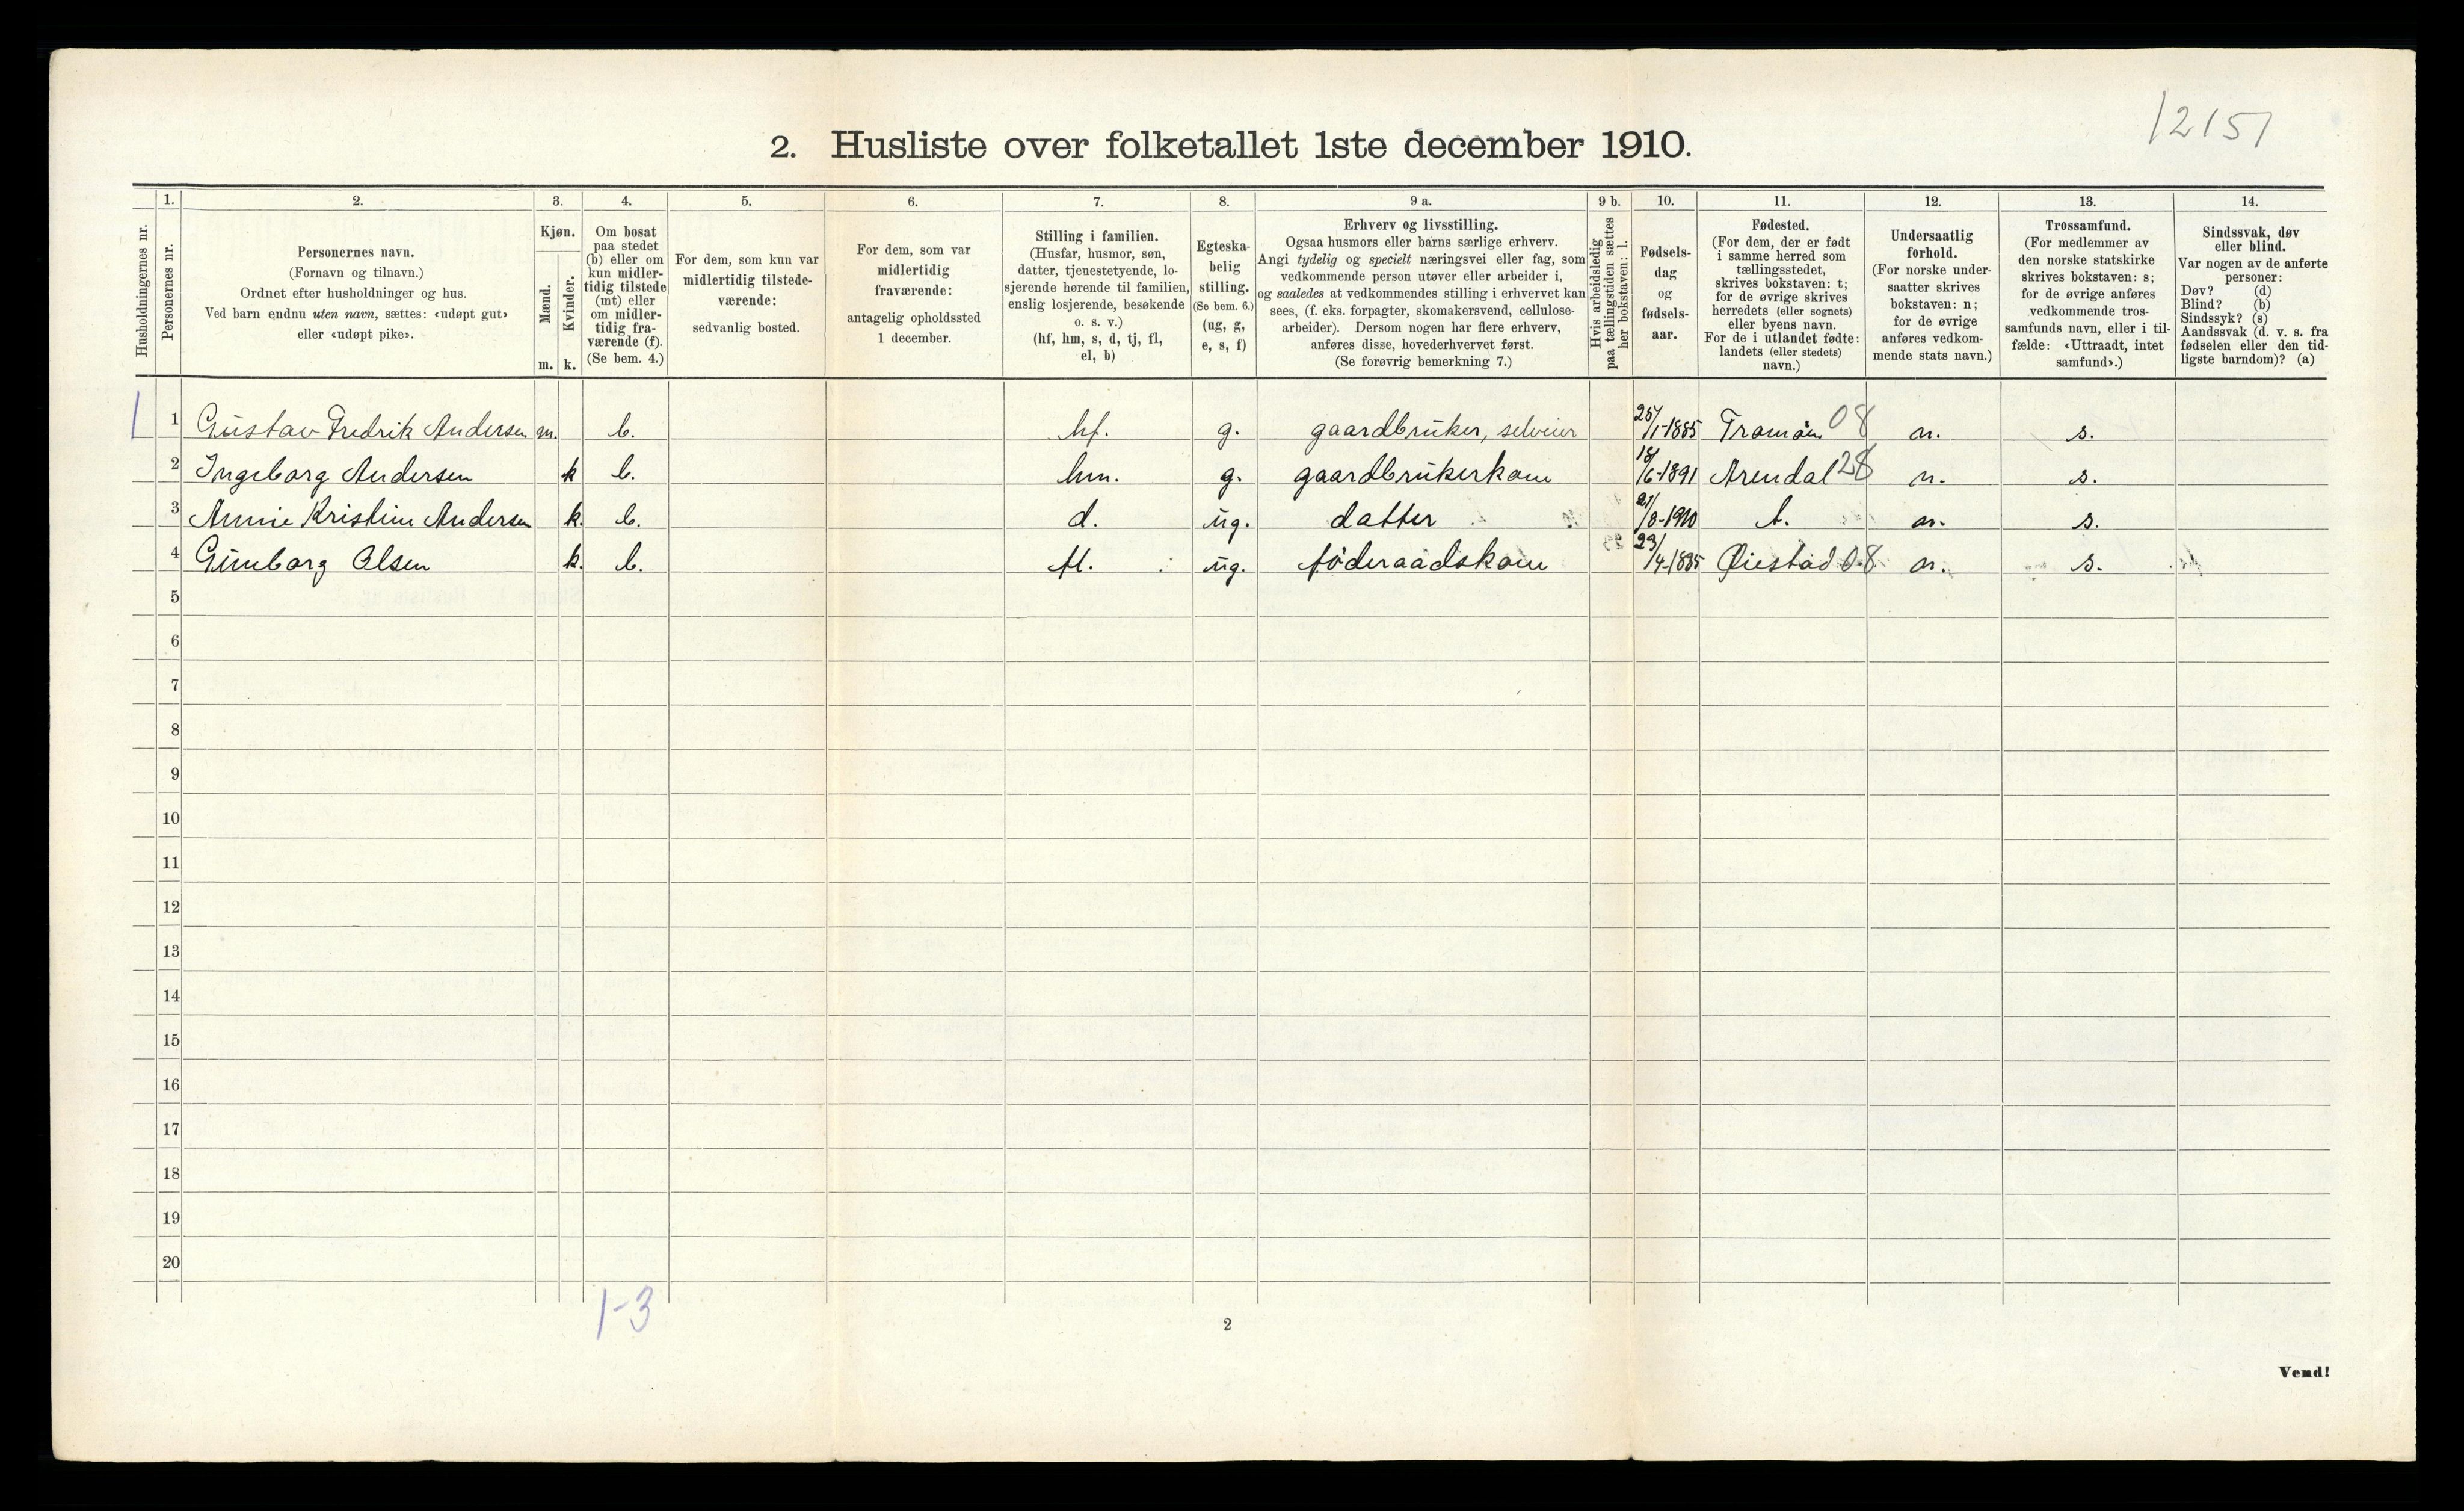 12151
2. Husliste over folketallet 1ste december 1910.
Husholdningernes nr.
1.
Personernes nr.
2.
Personernes navn.
(Fornavn og tilnavn.)
Ordnet efter husholdninger og hus.
Ved barn endnu uten navn, sættes: «udøpt gut»
eller «udøpt pike».
3.
Kjøn.
Mænd.
Kvinder.
m. k.
4.
Om bosat
paa stedet
(b) eller om
kun midler-
tidig tilstede
(mt) eller
om midler-
tidig fra-
værende (f).
(Se bem. 4.)
5.
For dem, som kun var
midlertidig tilstede-
værende:
sedvanlig bosted.
6.
For dem, som var
midlertidig
fraværende:
antagelig opholdssted
1 december.
7.
Stilling i familien.
(Husfar, husmor, søn,
datter, tjenestetyende, lo-
sjerende hørende til familien,
enslig losjerende, besøkende
o. s. v.)
(hf, hm, s, d, tj, fl,
el, b)
8.
Egteska-
belig
stilling.
(Se bem. 6.)
(ug, g,
e, s, f)
9 a.
Erhverv og livsstilling.
Ogsaa husmors eller barns særlige erhverv.
Angi tydelig og specielt næringsvei eller fag, som
vedkommende person utøver eller arbeider i,
og saaledes at vedkommendes stilling i erhvervet kan
sees, (f. eks. forpagter, skomakersvend, cellulose-
arbeider). Dersom nogen har flere erhverv,
anføres disse, hovederhvervet først.
(Se forøvrig bemerkning 7.)
9 b.
Hvis arbeidsledig
paa tællingstiden sættes
her bokstaven: l.
10.
Fødsels-
dag
og
fødsels-
aar.
11.
Fødested.
(For dem, der er født
i samme herred som
tællingsstedet,
skrives bokstaven: t;
for de øvrige skrives
herredets (eller sognets)
eller byens navn.
For de i utlandet fødte:
landets (eller stedets)
navn.)
12.
Undersaatlig
forhold.
(For norske under-
saatter skrives
bokstaven: n;
for de øvrige
anføres vedkom-
mende stats navn.)
13.
Trossamfund.
(For medlemmer av
den norske statskirke
skrives bokstaven: s;
for de øvrige anføres
vedkommende tros-
samfunds navn, eller i til-
fælde: «Uttraadt, intet
samfund».)
14.
Sindssvak, døv
eller blind.
Var nogen av de anførte
personer:
Døv? (d)
Blind? (b)
Sindssyk? (s)
Aandssvak (d. v. s. fra
fødselen eller den tid-
ligste barndom)? (a)
1 1 Gustav Fredrik Andersen m. b. hf. g. gaardbruker, selveier 25/1-1885 Tromøen 08 n. s.
2 Ingeborg Andersen k b. hm. g. gaardbrukerkone 18/6-1891 Arendal 28 n. s.
3 Annie Kristine Andersen k. b. d. ug. datter 21/8-1910 t. n. s.
4 Gunborg Olsen k. b. fl. ug. føderaadskone 23/4-1885 Øiestad 08 n. s.
5
6
7
8
9
10
11
12
13
14
15
16
17
18
19
20
1-3
2
Vend!